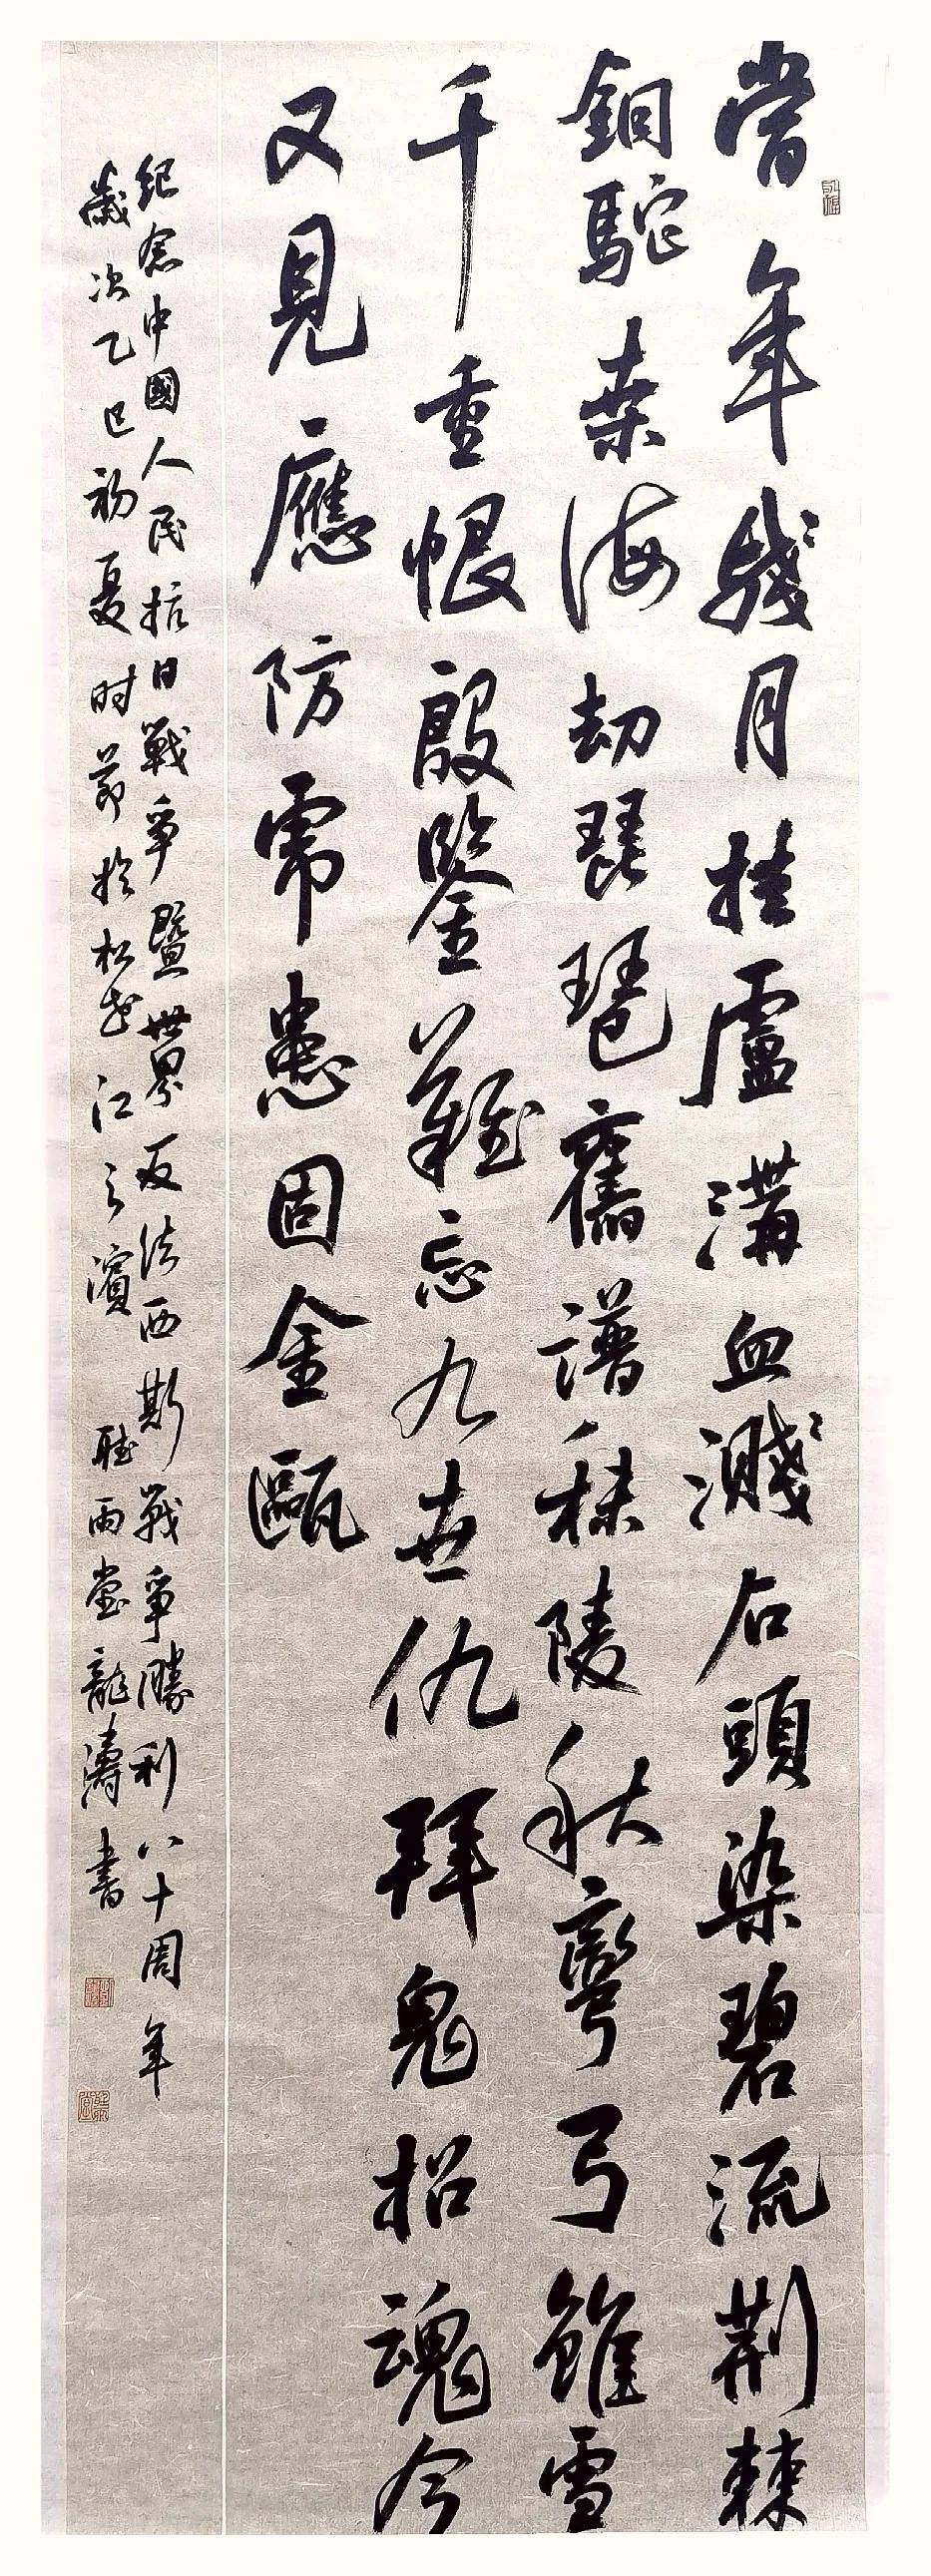 當年殘月挂盧溝血濺石頭染碧流荆棘
銅駝桑海劫琵琶舊譜秣陵秋彎弓雖雪
千重恨殷鑒難忘九世仇拜鬼招魂今
又見應防虎患固金甌
紀念中國人民抗日戰爭暨世界反法西斯戰爭勝利八十周年
歲次乙巳初夏时節於松花江之濱 聴雨堂龍濤書